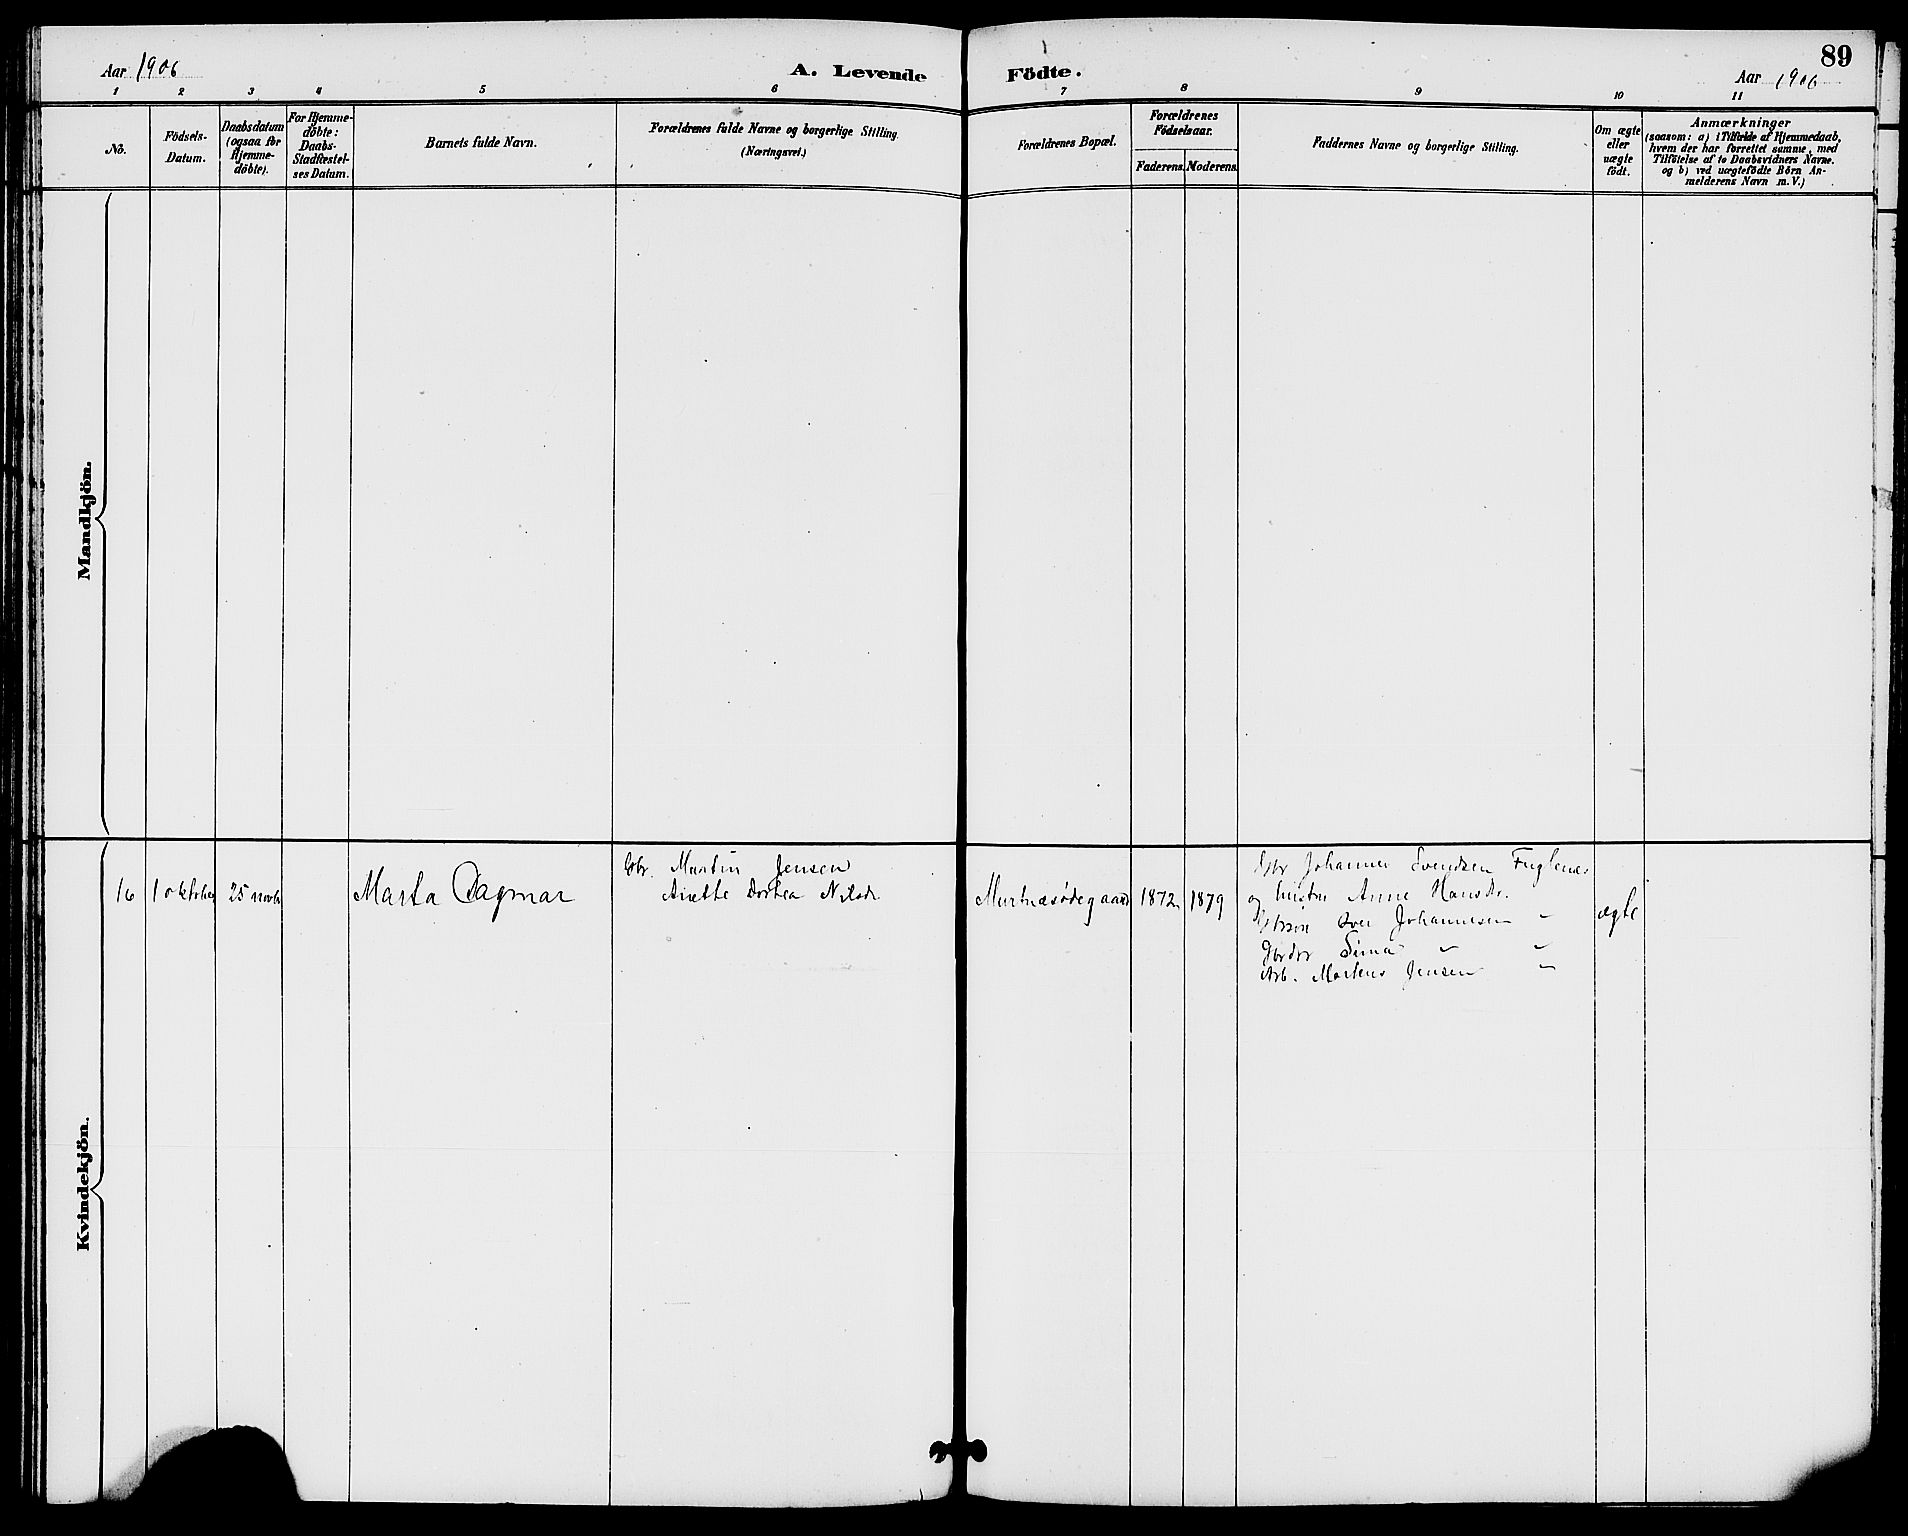 Aar 1906
A. Levende
Födte.
89
Aar 1906
1 2 3 4 5 6 7 8 9 10 11
No.
Födsels-
Datum.
Daabsdatum
(ogsaa for
Hjemme-
döbte).
For Hjemme-
döbte:
Daabs-
Stadfæstel-
ses Datum.
Barnets fulde Navn.
Forældrenes fulde Navne og borgerlige Stilling.
(Næringsvei.)
Forældrenes Bopæl.
Forældrenes
Födselsaar.
Faderens.
Moderens.
Faddernes Navne og borgerlige Stilling.
Om ægte
eller
uægte
födt.
Anmærkninger
(saasom: a) i Tilfælde af Hjemmedaab,
hvem der har forrettet samme, med
Tilföielse af to Daabsvidners Navne.
og b) ved uægtefödte Börn An-
melderens Navn m. V.)
Mandkjön.
Kvindekjön.
16
1 oktober
25 novbr
Marta Dagmar
Gbr. Martin Jensen
Anette Dortea Nilsdr
1872
1879
Gbr Johannes Svendsen Fuglenes
og hustru Anne Hansdr.
Johannesen "
" "
Arb. Jensen "
ægte